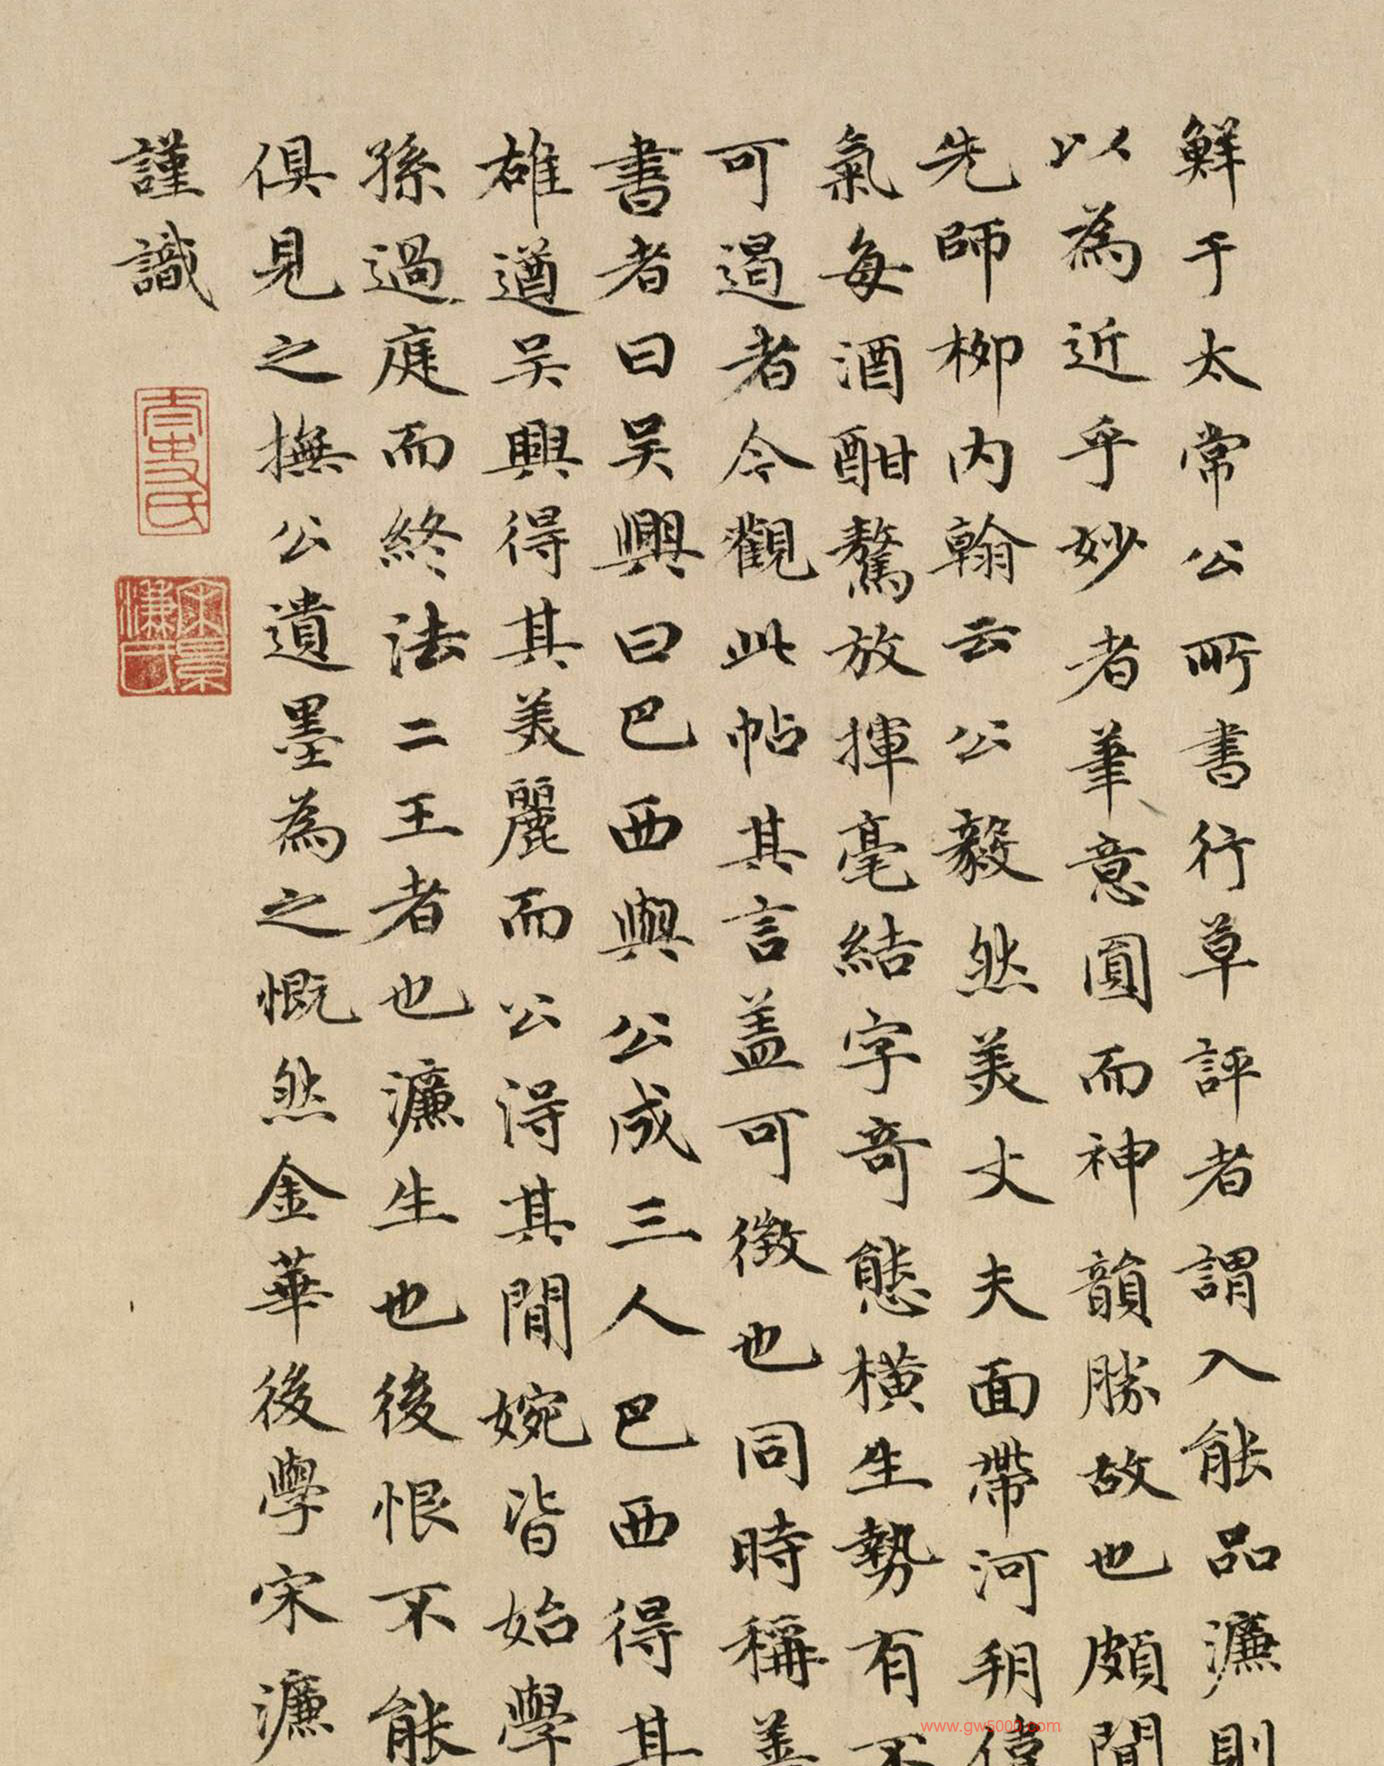 鮮于太常公所書行草評者謂入能品濂則
以為近乎妙者筆意圓而神韻勝故也頗聞
先師柳内翰云公毅然美丈夫面帶河朔偉
氣每酒酣驁放揮毫結字奇態橫生勢有不
可遏者今觀此帖其言盖可徵也同時稱善
書者曰吴興曰巴西與公成三人巴西得其
雄遒吴興得其美麗而公得其閒婉皆始學
孫過庭而終法二王者也濂生也後恨不能
俱見之撫公遺墨為之慨然金華後學宋濂
謹識
太史氏
宋景濂氏
www.gw5000.com